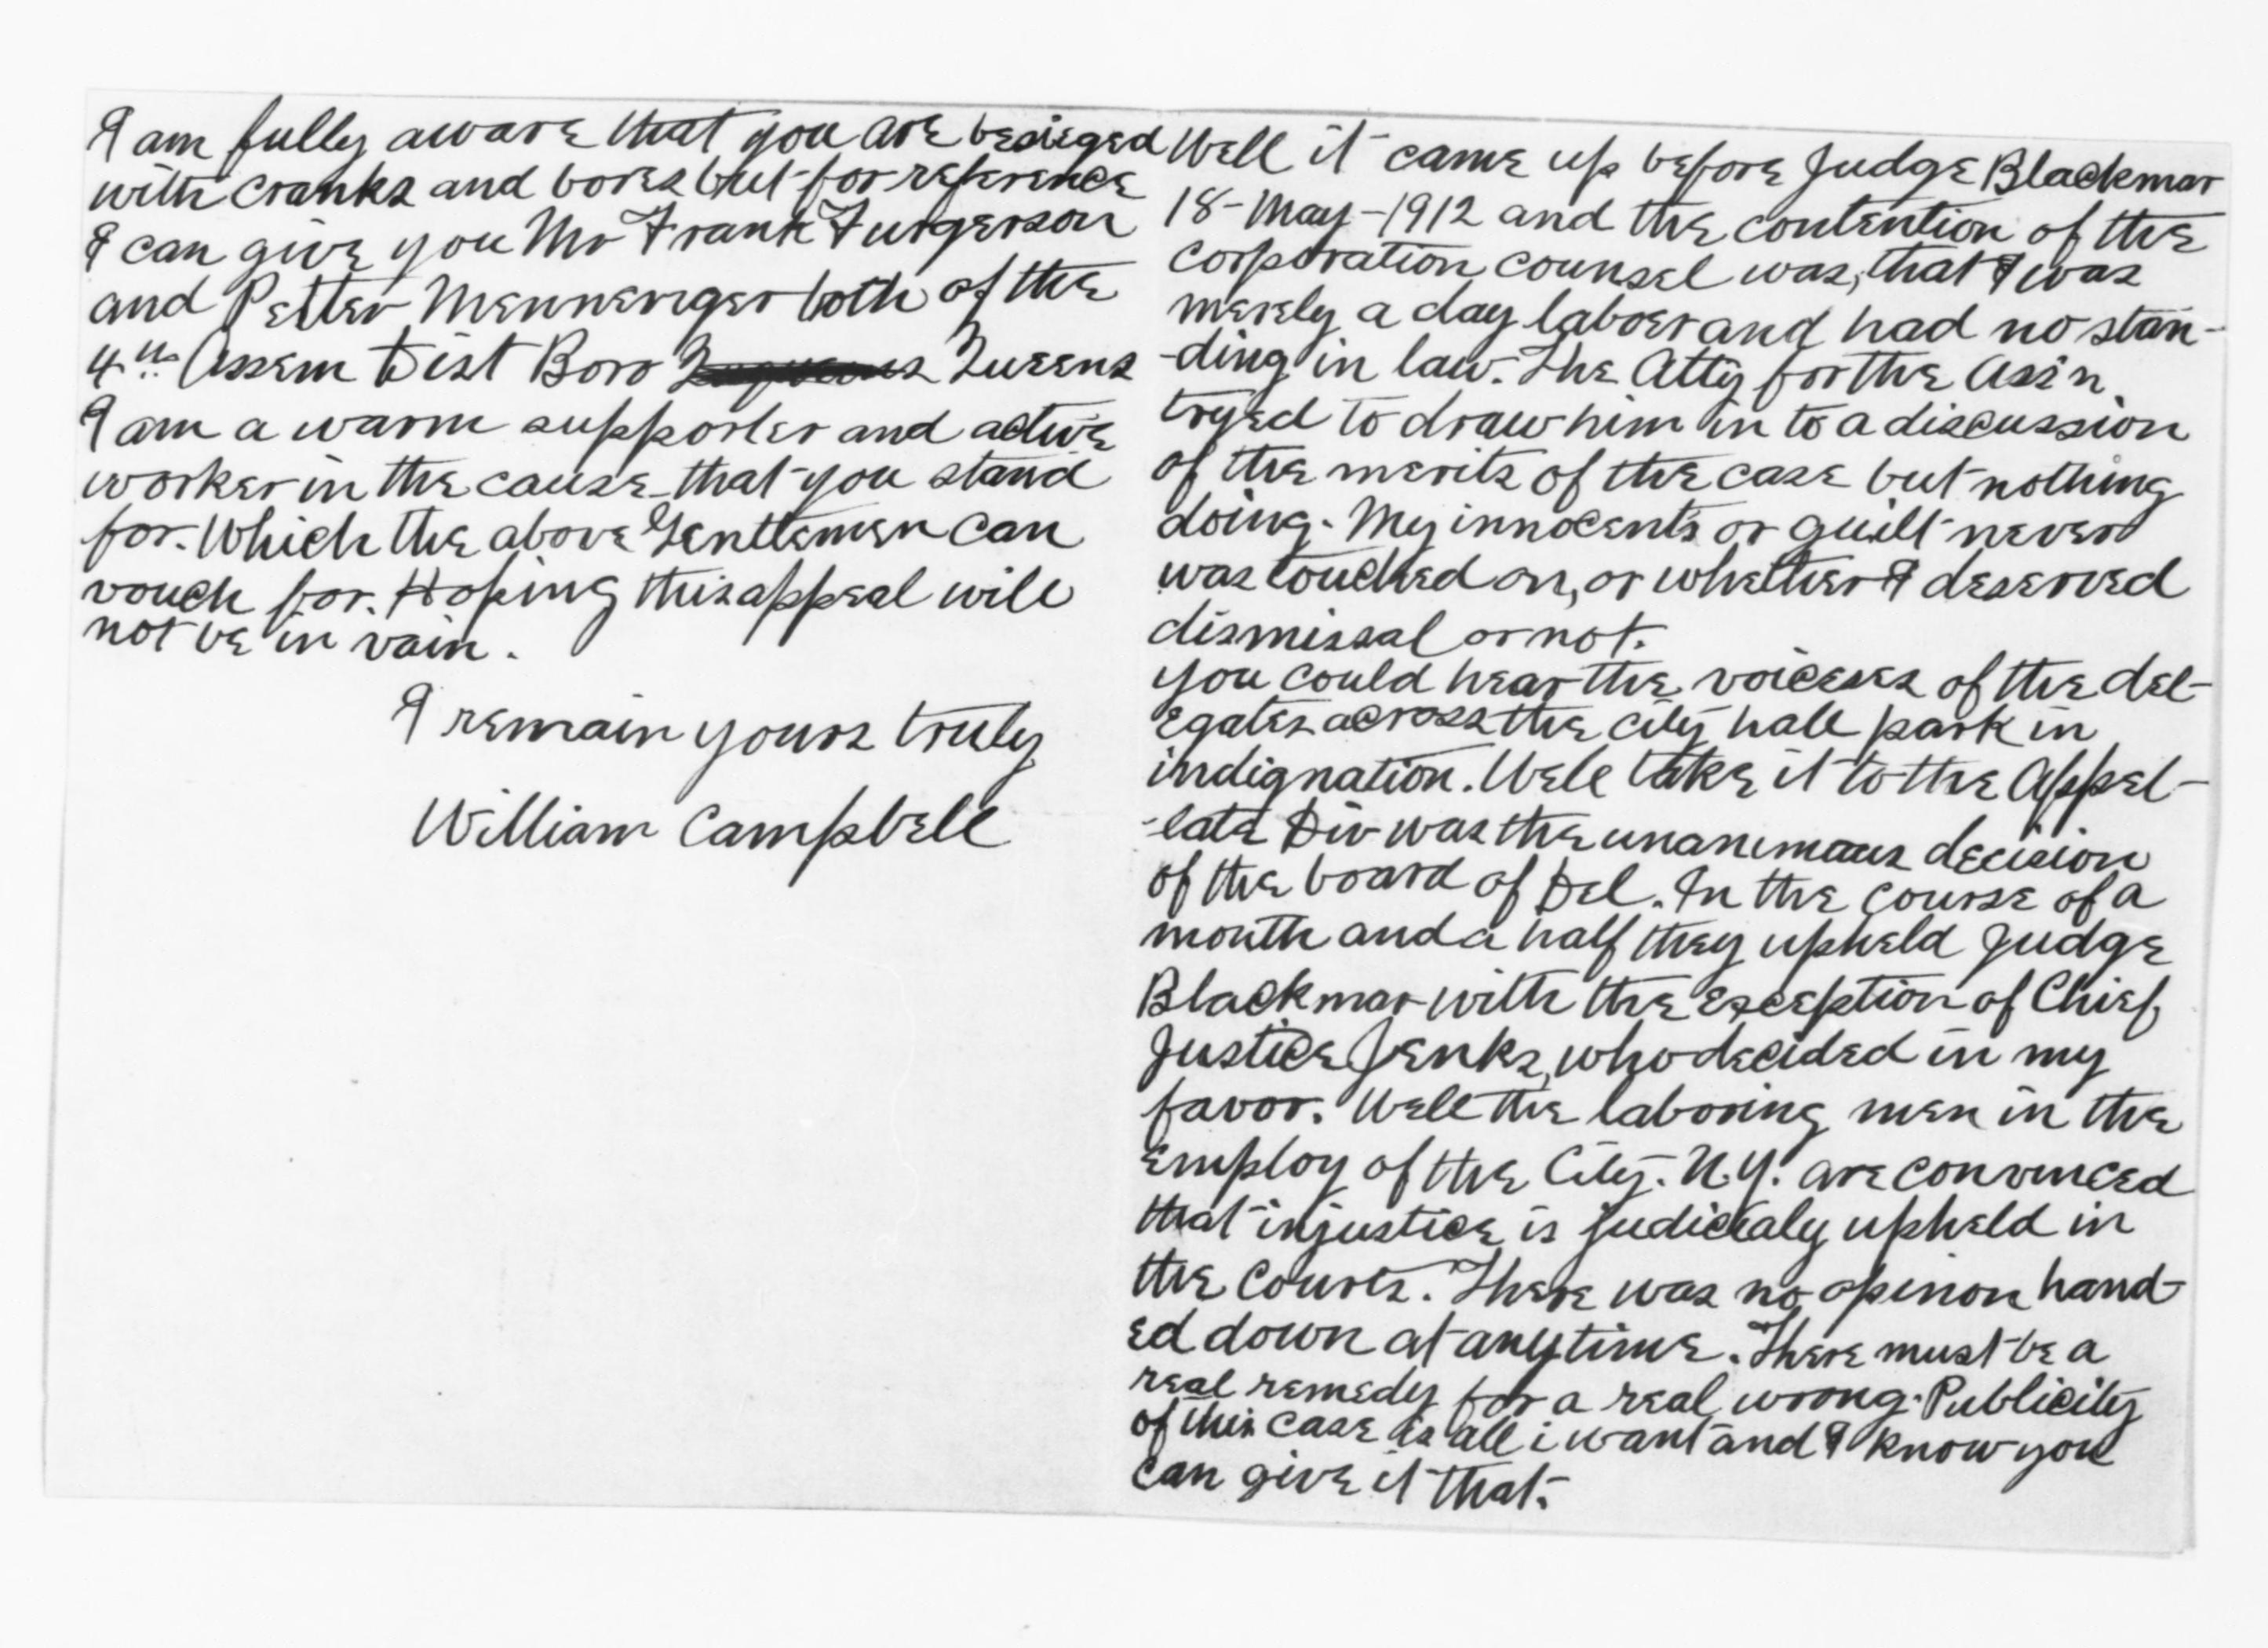 I am fully aware that you are besieged
with cranks and bores but for reference
I can give you Mr Frank Furgerson
and Petter Menneriger both of the
4th Assem Dist Boro Queens
I am a warm supporter and active
worker in the cause that you stand
for. Which the above Gentlemen can
vouch for. Hoping this appeal will
not be in vain.
I remain yours truly
William Campbell
Well it came up before Judge Blackmar
18-May-1912 and the contention of the
corporation counsel was, that I was
merely a day laboer and had no stan-
-ding in law. The Atty for the Assn
tryed to draw him in to a discussion
of the merits of the case but nothing
doing. My innocents or guilt never
was touched on, or whether I deserved
dismissal or not.
you could hear the voiceses of the del-
egates across the city hall park in
indignation. Well take it to the Appel-
-late Div was the unanimous decision
of the board of Del. In the course of a
month and a half they upheld Judge
Blackmar with the exception of Chief
Justice Jenks, who decided in my
favor. Well the laboring men in the
employ of the City. N.Y. are convinced
that injustice is judicialy upheld in
the courts. There was no opinon hand-
ed down at anytime. There must be a
real remedy for a real wrong. Publicity
of this case is all i want and I know you
can give it that.